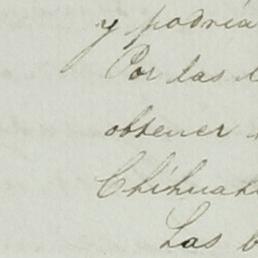 y podría
Por las
obtener
Chihuah
Las